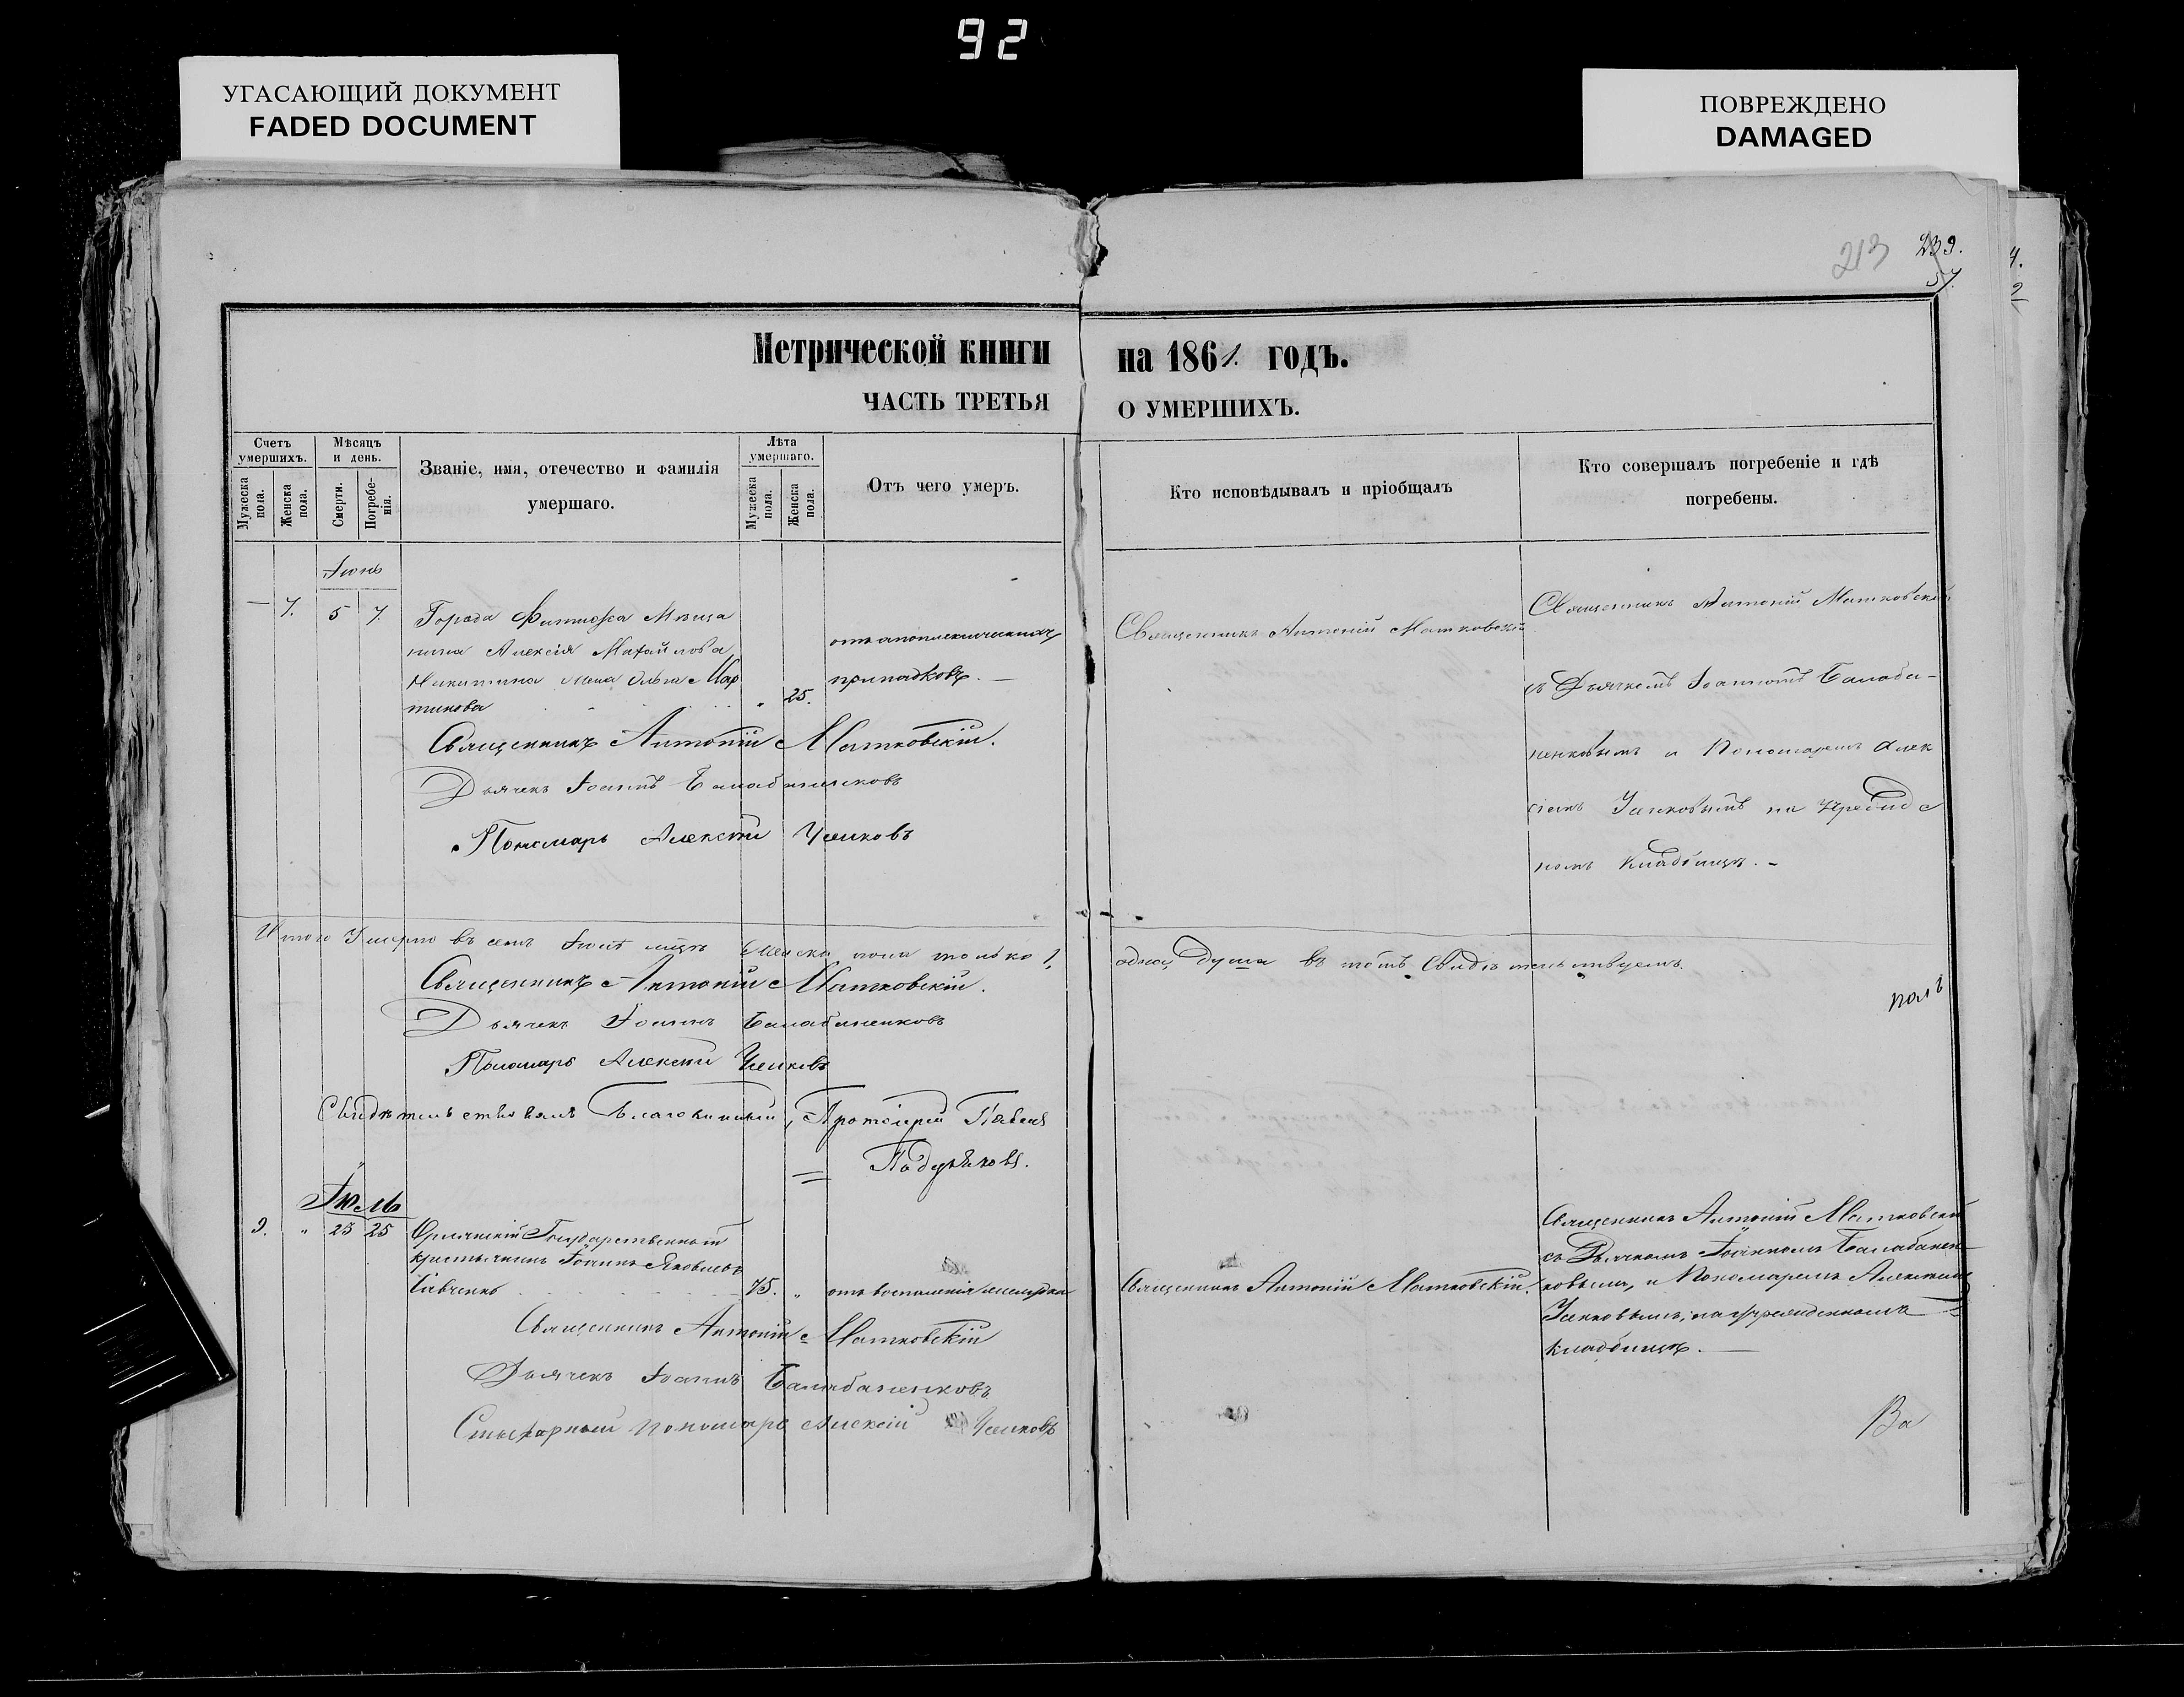 92
УГАСАЮЩИЙ ДОКУМЕНТ
FADED DOCUMENT
ПОВРЕЖДЕНО
DAMAGED
213 239.
57.
4.
2
Метрической книги на 1861. годъ.
ЧАСТЬ ТРЕТЬЯ О УМЕРШИХЪ.
Счетъ умершихъ.
Мужеска пола.
Женска пола.
Мѣсяцъ и день.
Смерти.
Погребенія.
Званіе, имя, отечество и фамилія умершаго.
Лѣта умершаго.
Мужеска пола.
Женска пола.
Отъ чего умеръ.
Кто исповѣдывалъ и пріобщалъ
Кто совершалъ погребеніе и гдѣ погребены.
Іюнь
— 7. 5 7.
Города Мѣща
нина Алексія
Никитина жена Ольга Мар
тинова 25.
отъ апоплексическихъ
припадковъ. —
Священникъ Антоній Матковскій
Священникъ Антоній Матковскій
съ Дьячкомъ Іоанномъ Балаба-
ненковымъ и Пономаремъ Алек
номъ кладбищѣ. –
Священникъ Антоній Матковскій.
Дьячекъ Іоаннъ Балабаненковъ
Пономарь Алексій
Итого Умерло въ семъ Іюнѣ мцѣ женска пола только 1,
одна душа въ томъ свидѣтельствуемъ.
Священникъ Антоній Матковскій.
Дьячекъ Іоаннъ Балабаненковъ
Пономарь Алексій
Свидѣтельствовалъ Благочинный, Протоіерей Павелъ
Іюль
9. " 23 25
Государственный
крестьянинъ Іоаннъ Яковлевъ
Савченко 75. "
отъ воспаленія желудка
Священникъ Антоній Матковскій.
Священникъ Антоній Матковскій
съ Дьячкомъ Іоанномъ Балабанен-
ковымъ, и Пономаремъ Алексіемъ
на учрежденномъ
кладбищѣ. —
Священникъ Антоній Матковскій
Дьячекъ Іоаннъ Балабаненковъ
Стихарный пономарь Алексій
Ва